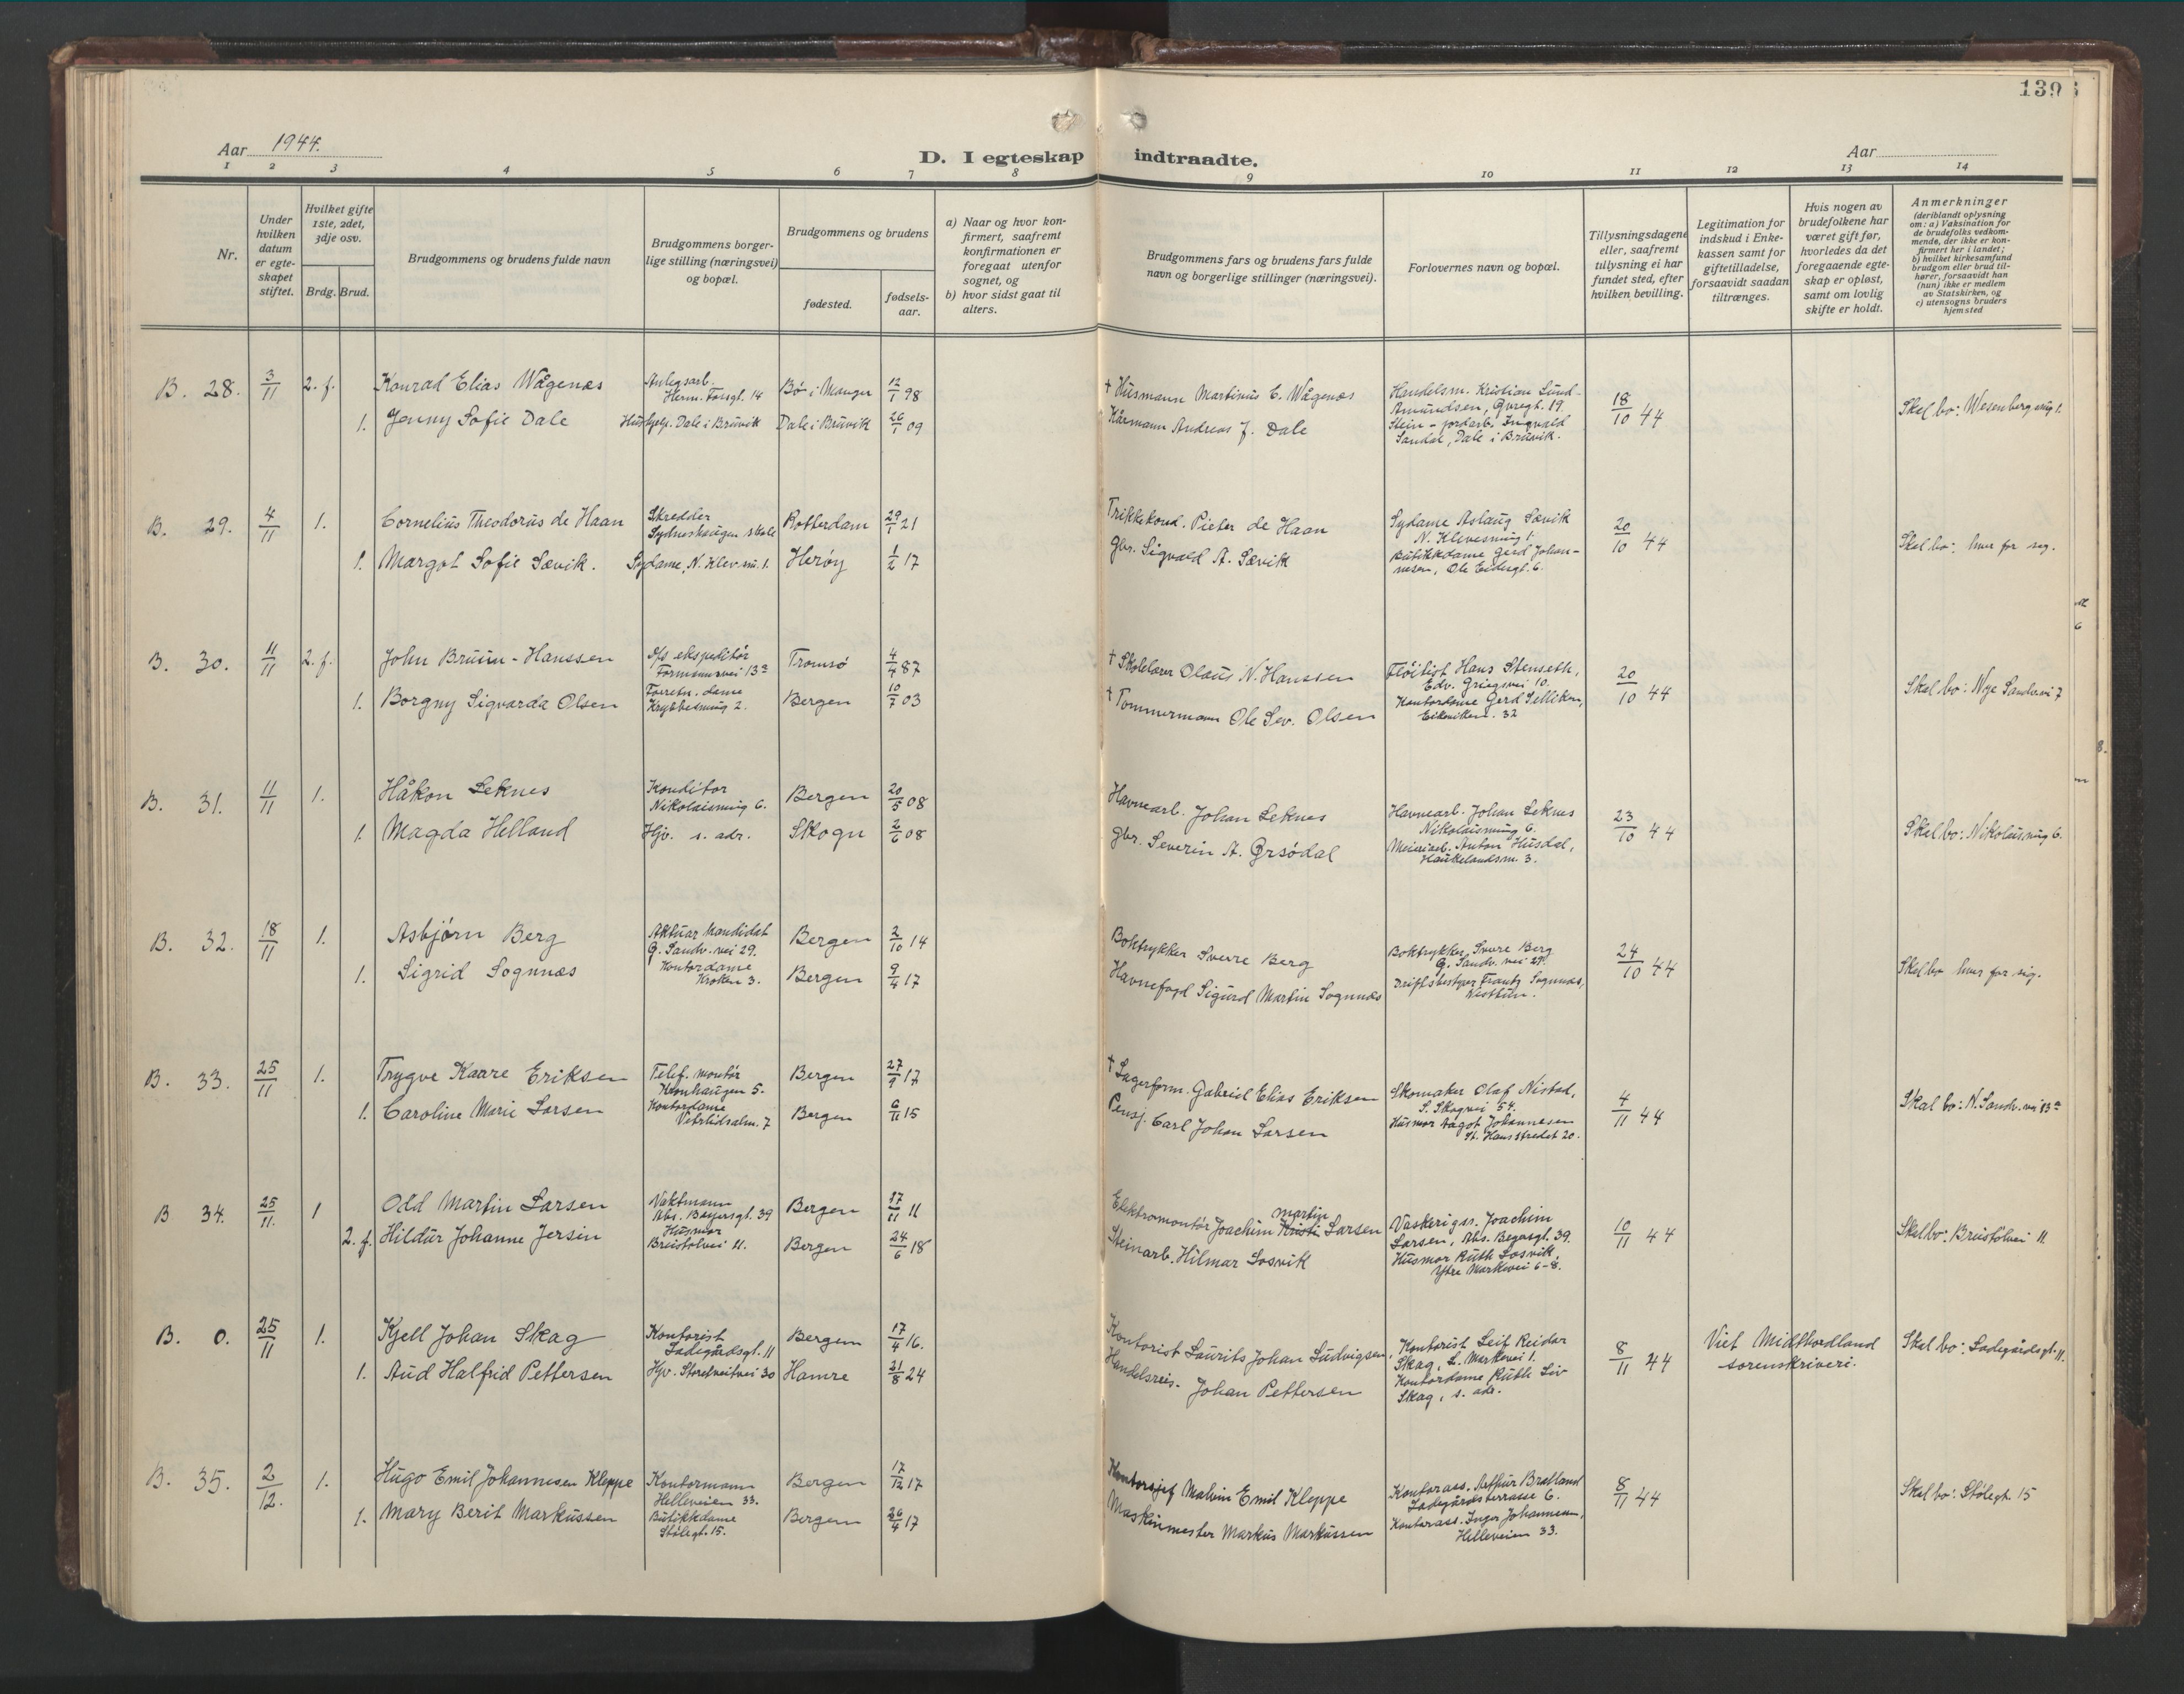 139
Aar 1944.
D. I egteskap indtraadte.
Aar
1 2 3 4 5 6 7 8 9 10 11 12 13 14
Nr.
Under hvilken datum er egteskapet stiftet.
Hvilket gifte 1ste, 2det, 3dje osv.
Brdg. Brud.
Brudgommens og brudens fulde navn
Brudgommens borgerlige stilling (næringsvei) og bopæl.
Brudgommens og brudens
fødested.
fødselsaar.
a) Naar og hvor konfirmert, saafremt konfirmationen er foregaat utenfor sognet, og
b) hvor sidst gaat til alters.
Brudgommens fars og brudens fars fulde navn og borgerlige stillinger (næringsvei).
Forlovernes navn og bopæl.
Tillysningsdagene eller, saafremt tillysning ei har fundet sted, efter hvilken bevilling.
Legitimation for indskud i Enkekassen samt for giftetilladelse, forsaavidt saadan tiltrænges.
Hvis nogen av brudefolkene har været gift før, hvorledes da det foregaaende egteskap er opløst, samt om lovlig skifte er holdt.
Anmerkninger
(deriblandt oplysning om: a) Vaksination for de brudefolks vedkommende, der ikke er konfirmert her i landet; b) hvilket kirkesamfund brudgom eller brud tilhører, forsaavidt han (hun) ikke er medlem av Statskirken, og c) utensogns bruders hjemsted
B. 28. 3/11 2. f. Konrad Elias Wågenæs Anlegsarb. Herm. Fossgt. 14 Bø i Manger 12/1 98 † Husmann Martinus E. Wågenæs Handelsm. Kristian Lund-Amundsen, 19. 18/10 44 Skal bo: Wesenbergsmug 1.
1. Jenny Sofie Dale Hushjelp. Dale i Brüvik Dale i Brüvik 26/1 09 Kårmann Andreas J. Dale Stein- jordarb. Ingvald Sandal, Dale i Brüvik.
B. 29. 4/11 1. Cornelius Theodorus de Haan Skredder Sydneshaugen skole Rotterdam 29/1 21 Trikkekond. Pieter de Haan Sydame Aslaug Sævik N. Klevesmug 1. 20/10 44 Skal bo: hver for seg.
1. Margot Sofie Sævik. Sydame, N. Klev.sm. 1. Herøy 1/2 17 Gbr. Sigvald A. Sævik Butikkdame Gerd Johannesen, Ole 6.
B. 30. 11/11 2. f. John Bruun-Hanssen D/s ekspeditør Formannsvei 13a Tromsø 4/4 87 † Skolelærer Olaus N. Hanssen Fløitist Hans Stenseth, Edv. Griegsvei 10. 20/10 44 Skal bo: Nye Sandv.vei 7
1. Borgny Sigvarda Olsen Forretn. dame 2. Bergen 10/7 03 † Tømmermann Ole Sev. Olsen Kontordame Gerd Selliken, Eikeviken. 32
B. 31. 11/11 1. Håkon Leknes Konditor Nikolaismug 6. Bergen 20/5 08 Havnearb. Johan Leknes Havnearb. Johan Leknes Nikolaismug 6. 23/10 44 Skal bo: Nikolaismug 6.
1. Magda Helland Hjv. s. adr. Skogn 2/6 08 Gbr. Severin A. Meieriarb. Anton Husdal, Haukelandsv. 3.
B. 32. 18/11 1. Asbjørn Berg Aktuar kandidat G. Sandv.vei 29. Bergen 2/10 14 Boktrykker Sverre Berg Boktrykker Sverre Berg G. Sandv. vei 29. 24/10 44 Skal bo hver for sig.
1. Sigrid Sognnæs Kontordame Kroken 3. Bergen 9/4 17 Havnefogd Sigurd Martin Sognnæs Driftsbestyrer Frantz Sognnæs, Nesttun.
B. 33. 25/11 1. Trygve Kaare Eriksen Telef. montør Kronhaugen 5. Bergen 27/9 17 † Lagerform. Gabriel Elias Eriksen Skomaker Olaf Nistad, S. Skogvei 54. 4/11 44 Skal bo: N. Sandv. vei 13a
1. Caroline Marie Larsen Kontordame Vetrlidsalm. 7 Bergen 6/11 15 Pensj. Carl Johan Larsen Husmor Dagot Johannesen St. Hansstredet 20.
B 34. 25/11. 1 Odd Martin Larsen Vaktmann Abs. Beyersgt. 39 Bergen 17/11 11 Elektromontør Joachim Martin Larsen Vaskerigss. Joachim Larsen, Abs. Beyersgt. 39. 10/11 44 Skal bo: Bruistølvei 11.
2. f. Hildur Johanne Jersin Husmor Bruistølvei 11. Bergen 24/6 18 Steinarb. Hilmar Losvik Husmor Ruth Losvik, Ytre Markevei 6-8.
B. 0. 25/11 1. Kjell Johan Skag Kontorist Ladegårdsgt. 11 Bergen 17/4 16. Kontorist Laurits Johan Ludvigsen, Kontorist Leif Reidar Skag, L. Markevei 1. 8/11 44 Viet Midthordland sorenskriveri. Skal bo: Ladegårdsgt. 11.
1. Aud Halfrid Pettersen Hjv. Storetveitvei 30 Hamre 21/8 24 Handelsreis. Johan Pettersen Kontordame Ruth Liv Skag, s. adr.
B. 35. 2/12. 1. Hugo Emil Johannesen Kleppe Kontormann Helleveien 33. Bergen 17/12 17 Kontorsjef Malvin Emil Kleppe Kontorass. Arthur Bratland Ladegårdsterrasse 6. 8/11 44 Skal bo: Stølegt. 15
1. Mary Berit Markussen Butikkdame Stølegt. 15. Bergen 26/4 17 Maskinmester Markus Markussen Kontorass. Inger Johannesen, Helleveien 33.